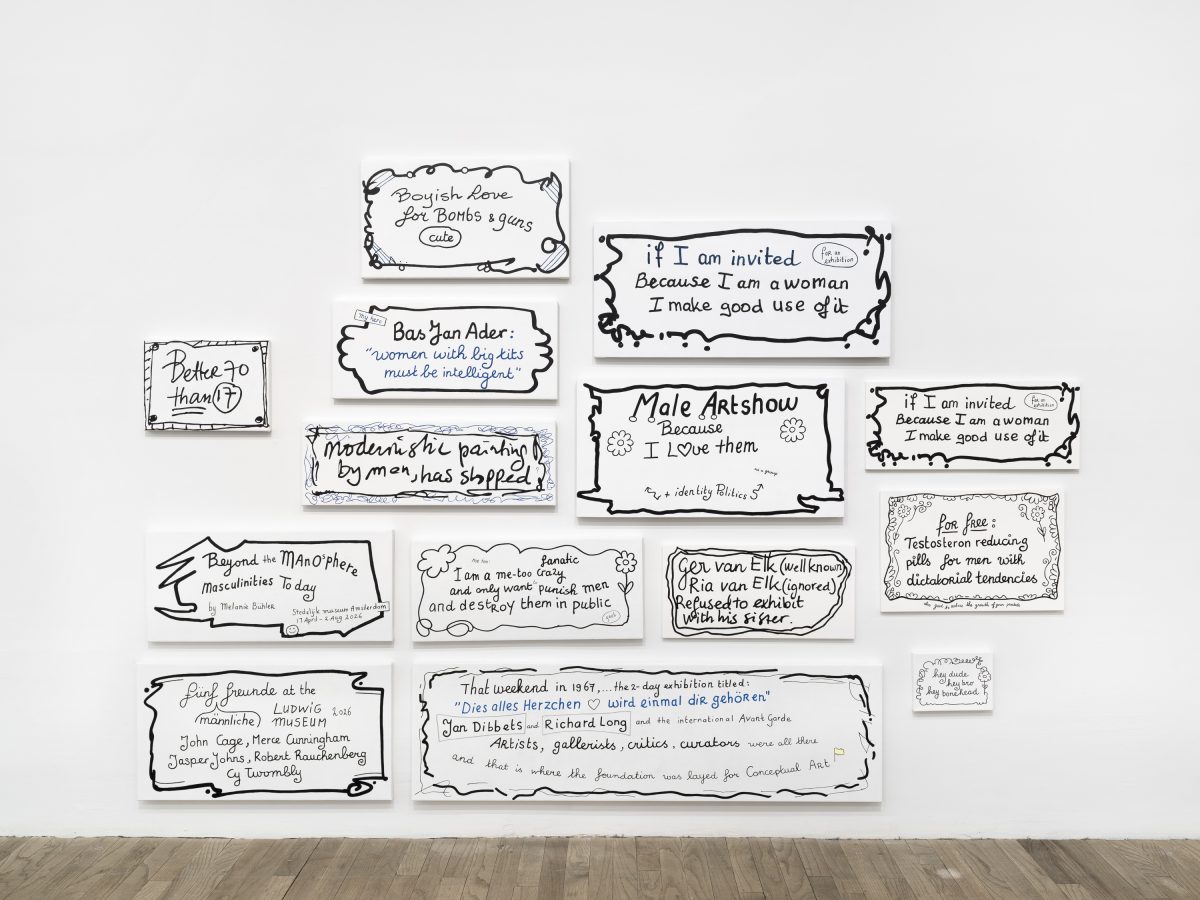 Boyish Love
for BOMBS & guns
cute
if I am invited
for an
exhibition
Because I am a woman
I make good use of it
my hero
Bas Jan Ader:
"women with big tits
must be intelligent"
Better 70
than 17
Male Artshow
Because
I L♡ve them
as a group
+ identity Politics
if I am invited
for an
exhibition
Because I am a woman
I make good use of it
modernistic painting
by men, has stopped
for free:
Testosteron reducing
pills for men with
dictatorial tendencies
Beyond the MAnOsphere
masculinities Today
by Melanie Bühler
Stedelijk museum Amsterdam
17 April - 2 Aug 2026
me too:
fanatic
I am a me-too crazy
and only want punish men
and destroy them in public
Ger van Elk (well known)
Ria van Elk (ignored)
Refused to exhibit
with his sister.
hey dude
hey bro
hey bonehead
fünf freunde at the
(männliche) LUDWIG
museum 2026
John Cage, Merce Cunningham
Jasper Johns, Robert Rauchenberg
Cy Twombly
That weekend in 1967,...the 2-day exhibition titled:
"Dies alles Herzchen ♡ wird einmal dir gehören"
Jan Dibbets and Richard Long and the international Avant Garde
Artists, gallerists, critics, curators were all there
and that is where the foundation was layed for Conceptual Art